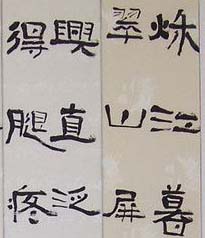 秌江暮
翠山屏
興直泛
得腿疼